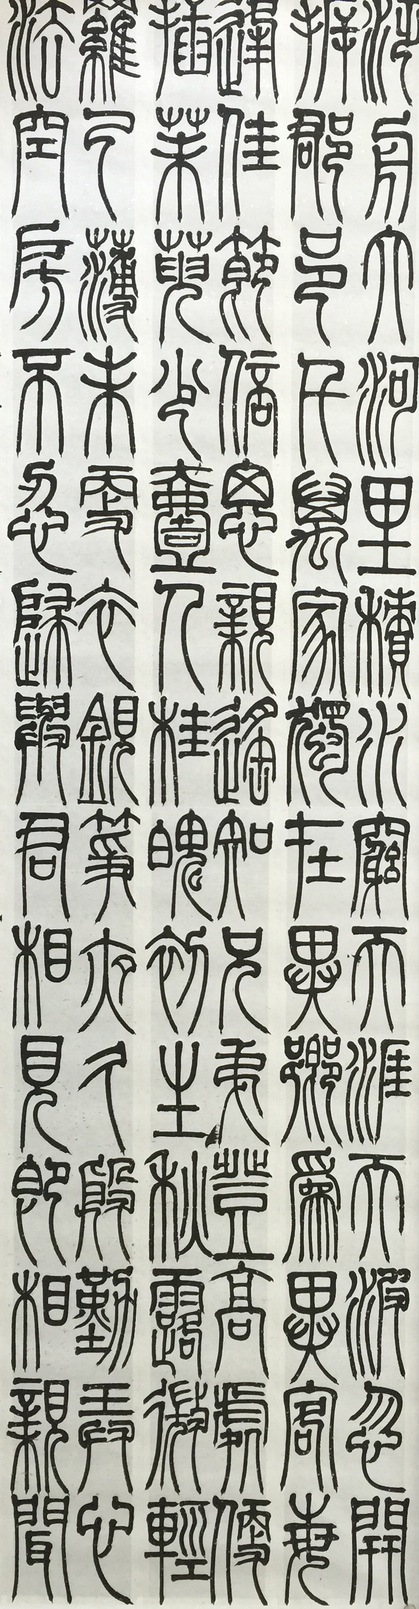 泛舟大河里積水窮天涯天波忽開
拆郡邑千萬家獨在異鄉為異客每
逢佳節倍思親遙知兄弟登高處便
插茱萸少壹人桂魄初生秋露微輕
羅已薄未更衣銀箏夜久殷勤弄心
怯空房不忍歸與君相見即相親聞